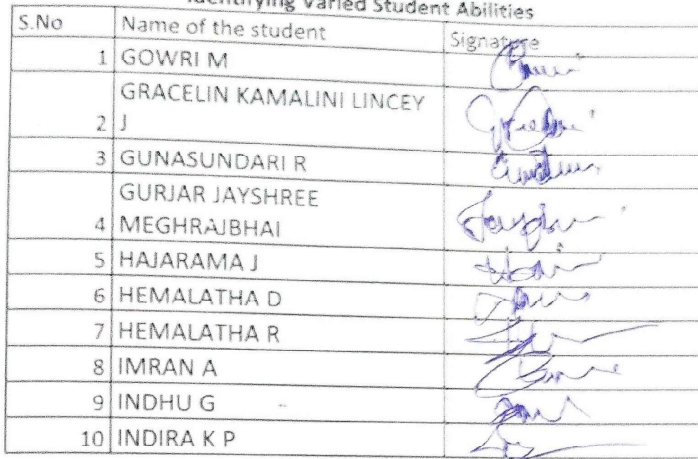 Identifying Varied Student Abilities
S.No Name of the student Signature
1 GOWRI M
GRACELIN KAMALINI LINCEY
2 J
3 GUNASUNDARI R
GURJAR JAYSHREE
4 MEGHRAJBHAI
5 HAJARAMA J
6 HEMALATHA D
7 HEMALATHA R
8 IMRAN A
9 INDHU G
10 INDIRA K P